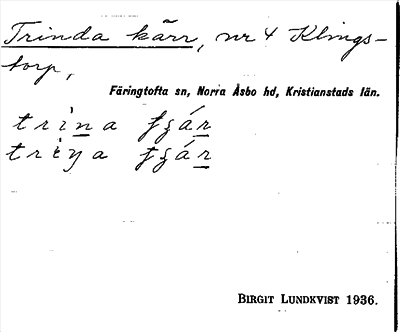 Trinda kärr, nr 4 Klings-
torp,
Färingtofta sn, Norra Åsbo hd, Kristianstads län.
BIRGIT LUNDKVIST 1936.